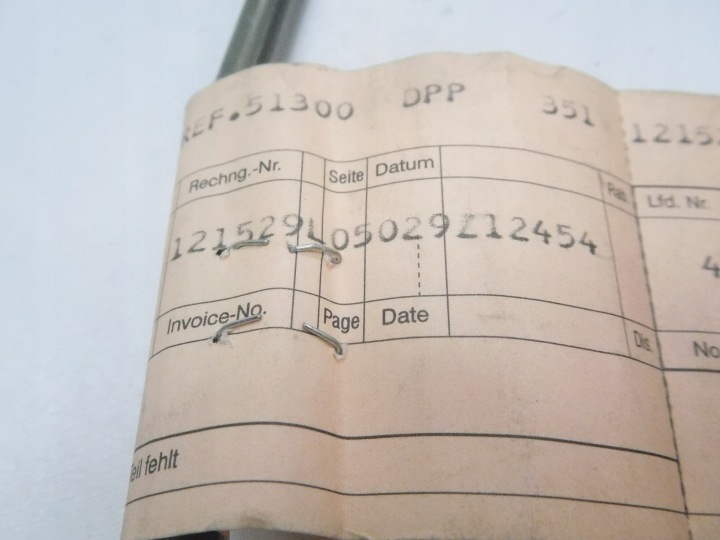 REF.51300 DPP 351 1215
Rechng.-Nr. Seite Datum Rab Lfd. Nr.
121529L05029Z12454 4
Invoice-No. Page Date Dis. No
eil fehlt